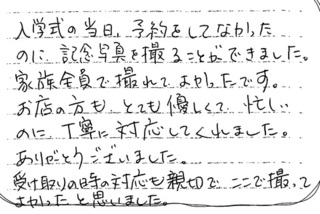 入学式の当日、予約をしてなかった
のに、記念写真を撮ることができました。
家族全員で撮れてよかったです。
お店の方も、とても優しくて、忙しい
のに、丁寧に対応してくれました。
ありがとうございました。
受け取りの日時の対応も親切で、ここで撮って
よかったと思いました。